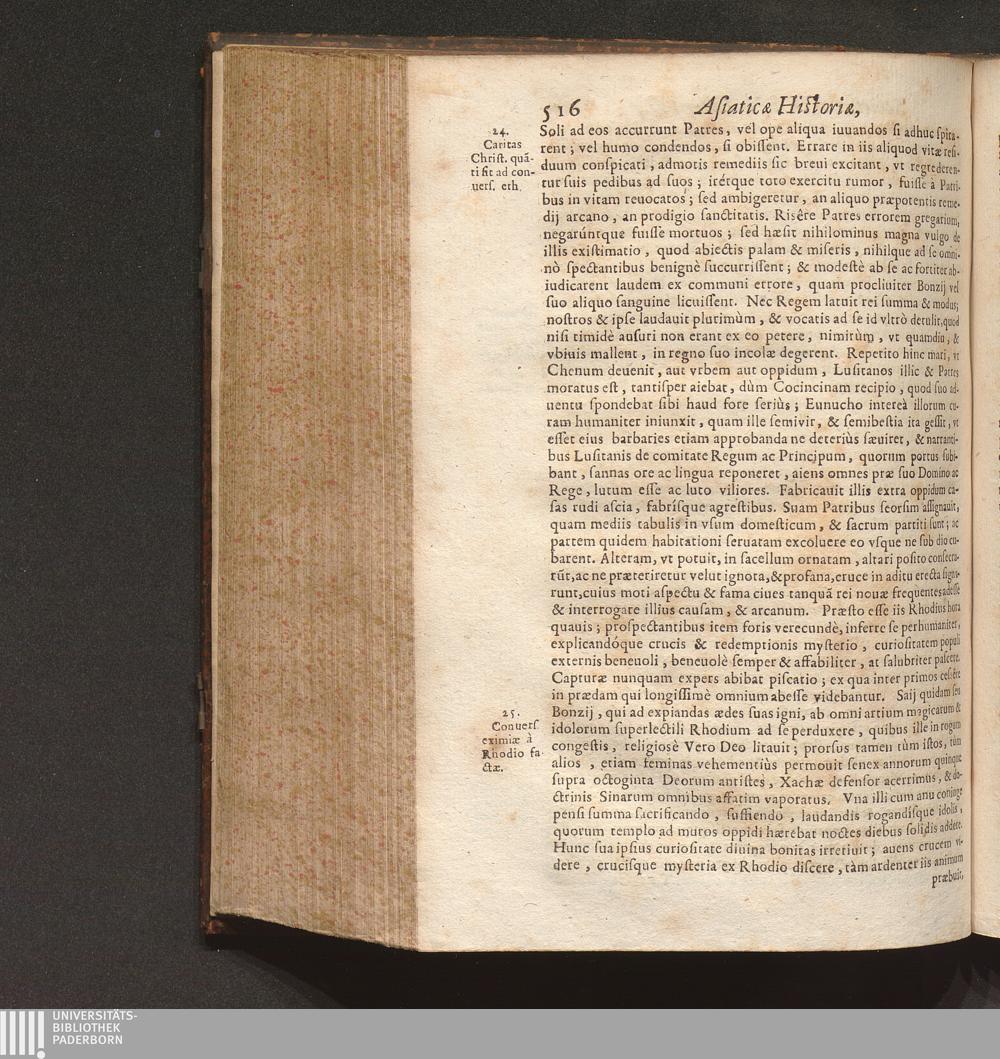 516 Asiaticæ Historiæ,
24.
Caritas
Christ. quã-
ti sit ad con-
uers. eth.
Soli ad eos accurrunt Patres, vel ope aliqua iuuandos si adhuc spira-
rent; vel humo condendos, si obissent. Errare in iis aliquod vitæ resi-
duum conspicati, admotis remediis sic breui excitant, vt regrederen-
tur suis pedibus ad suos; irétque toto exercitu rumor, fuisse à Patri-
bus in vitam reuocatos; sed ambigeretur, an aliquo præpotentis reme-
dij arcano, an prodigio sanctitatis. Risêre Patres errorem gregarium,
negarúntque fuisse mortuos; sed hæsit nihilominus magna vulgo de
illis existimatio, quod abiectis palam & miseris, nihilque ad se omni-
nò spectantibus benignè succurrissent; & modestè ab se ac fortiter ab-
iudicarent laudem ex communi errore, quam procliuiter Bonzij vel
suo aliquo sanguine licuissent. Nec Regem latuit rei summa & modus;
nostros & ipse laudauit plurimùm, & vocatis ad se id vltrò detulit, quod
nisi timidè ausuri non erant ex eo petere, nimirùm, vt quamdiu, &
vbiuis mallent, in regno suo incolæ degerent. Repetito hinc mari, vt
Chenum deuenit, aut vrbem aut oppidum, Lusitanos illic & Patres
moratus est, tantisper aiebat, dùm Cocincinam recipio, quod suo ad-
uentu spondebat sibi haud fore seriùs; Eunucho intereà illorum cu-
ram humaniter iniunxit, quam ille semivir, & semibestia ita gessit, vt
esset eius barbaries etiam approbanda ne deteriùs sæuiret, & narranti-
bus Lusitanis de comitate Regum ac Principum, quorum portus subi-
bant, sannas ore ac lingua reponeret, aiens omnes præ suo Domino ac
Rege, lutum esse ac luto viliores. Fabricauit illis extra oppidum ca-
sas rudi ascia, fabrísque agrestibus. Suam Patribus seorsim assignauit,
quam mediis tabulis in vsum domesticum, & sacrum partiti sunt; ac
partem quidem habitationi seruatam excoluere eo vsque ne sub dio cu-
barent. Alteram, vt potuit, in sacellum ornatam, altari posito consecra-
rũt, ac ne præteriretur velut ignota, & profana, cruce in aditu erecta signa-
runt, cuius moti aspectu & fama ciues tanquã rei nouæ frequentes adesse
& interrogare illius causam, & arcanum. Præsto esse iis Rhodius hora
quauis; prospectantibus item foris verecundè, inferre se perhumaniter,
explicandóque crucis & redemptionis mysterio, curiositatem populi
externis beneuoli, beneuolè semper & affabiliter, at salubriter pascere.
Capturæ nunquam expers abibat piscatio; ex qua inter primos cessêre
in prædam qui longissimè omnium abesse videbantur. Saij quidam seu
25.
Conuers.
eximiæ à
Rhodio fa-
ctæ.
Bonzij, qui ad expiandas ædes suas igni, ab omni artium magicarum &
idolorum superlectili Rhodium ad se perduxere, quibus ille in rogum
congestis, religiosè Vero Deo litauit; prorsus tamen tùm istos, tùm
alios, etiam feminas vehementiùs permouit senex annorum quinque
supra octoginta Deorum antistes, Xachæ defensor acerrimus, & do-
ctrinis Sinarum omnibus affatim vaporatus. Vna illi cum anu coniuge
pensi summa sacrificando, suffiendo, laudandis rogandísque idolis,
quorum templo ad muros oppidi hærebat noctes diebus solidis addere.
Hunc sua ipsius curiositate diuina bonitas irretiuit; auens crucem vi-
dere, crucisque mysteria ex Rhodio discere, tàm ardenter iis animum
præbuit,
UNIVERSITÄTS-
BIBLIOTHEK
PADERBORN